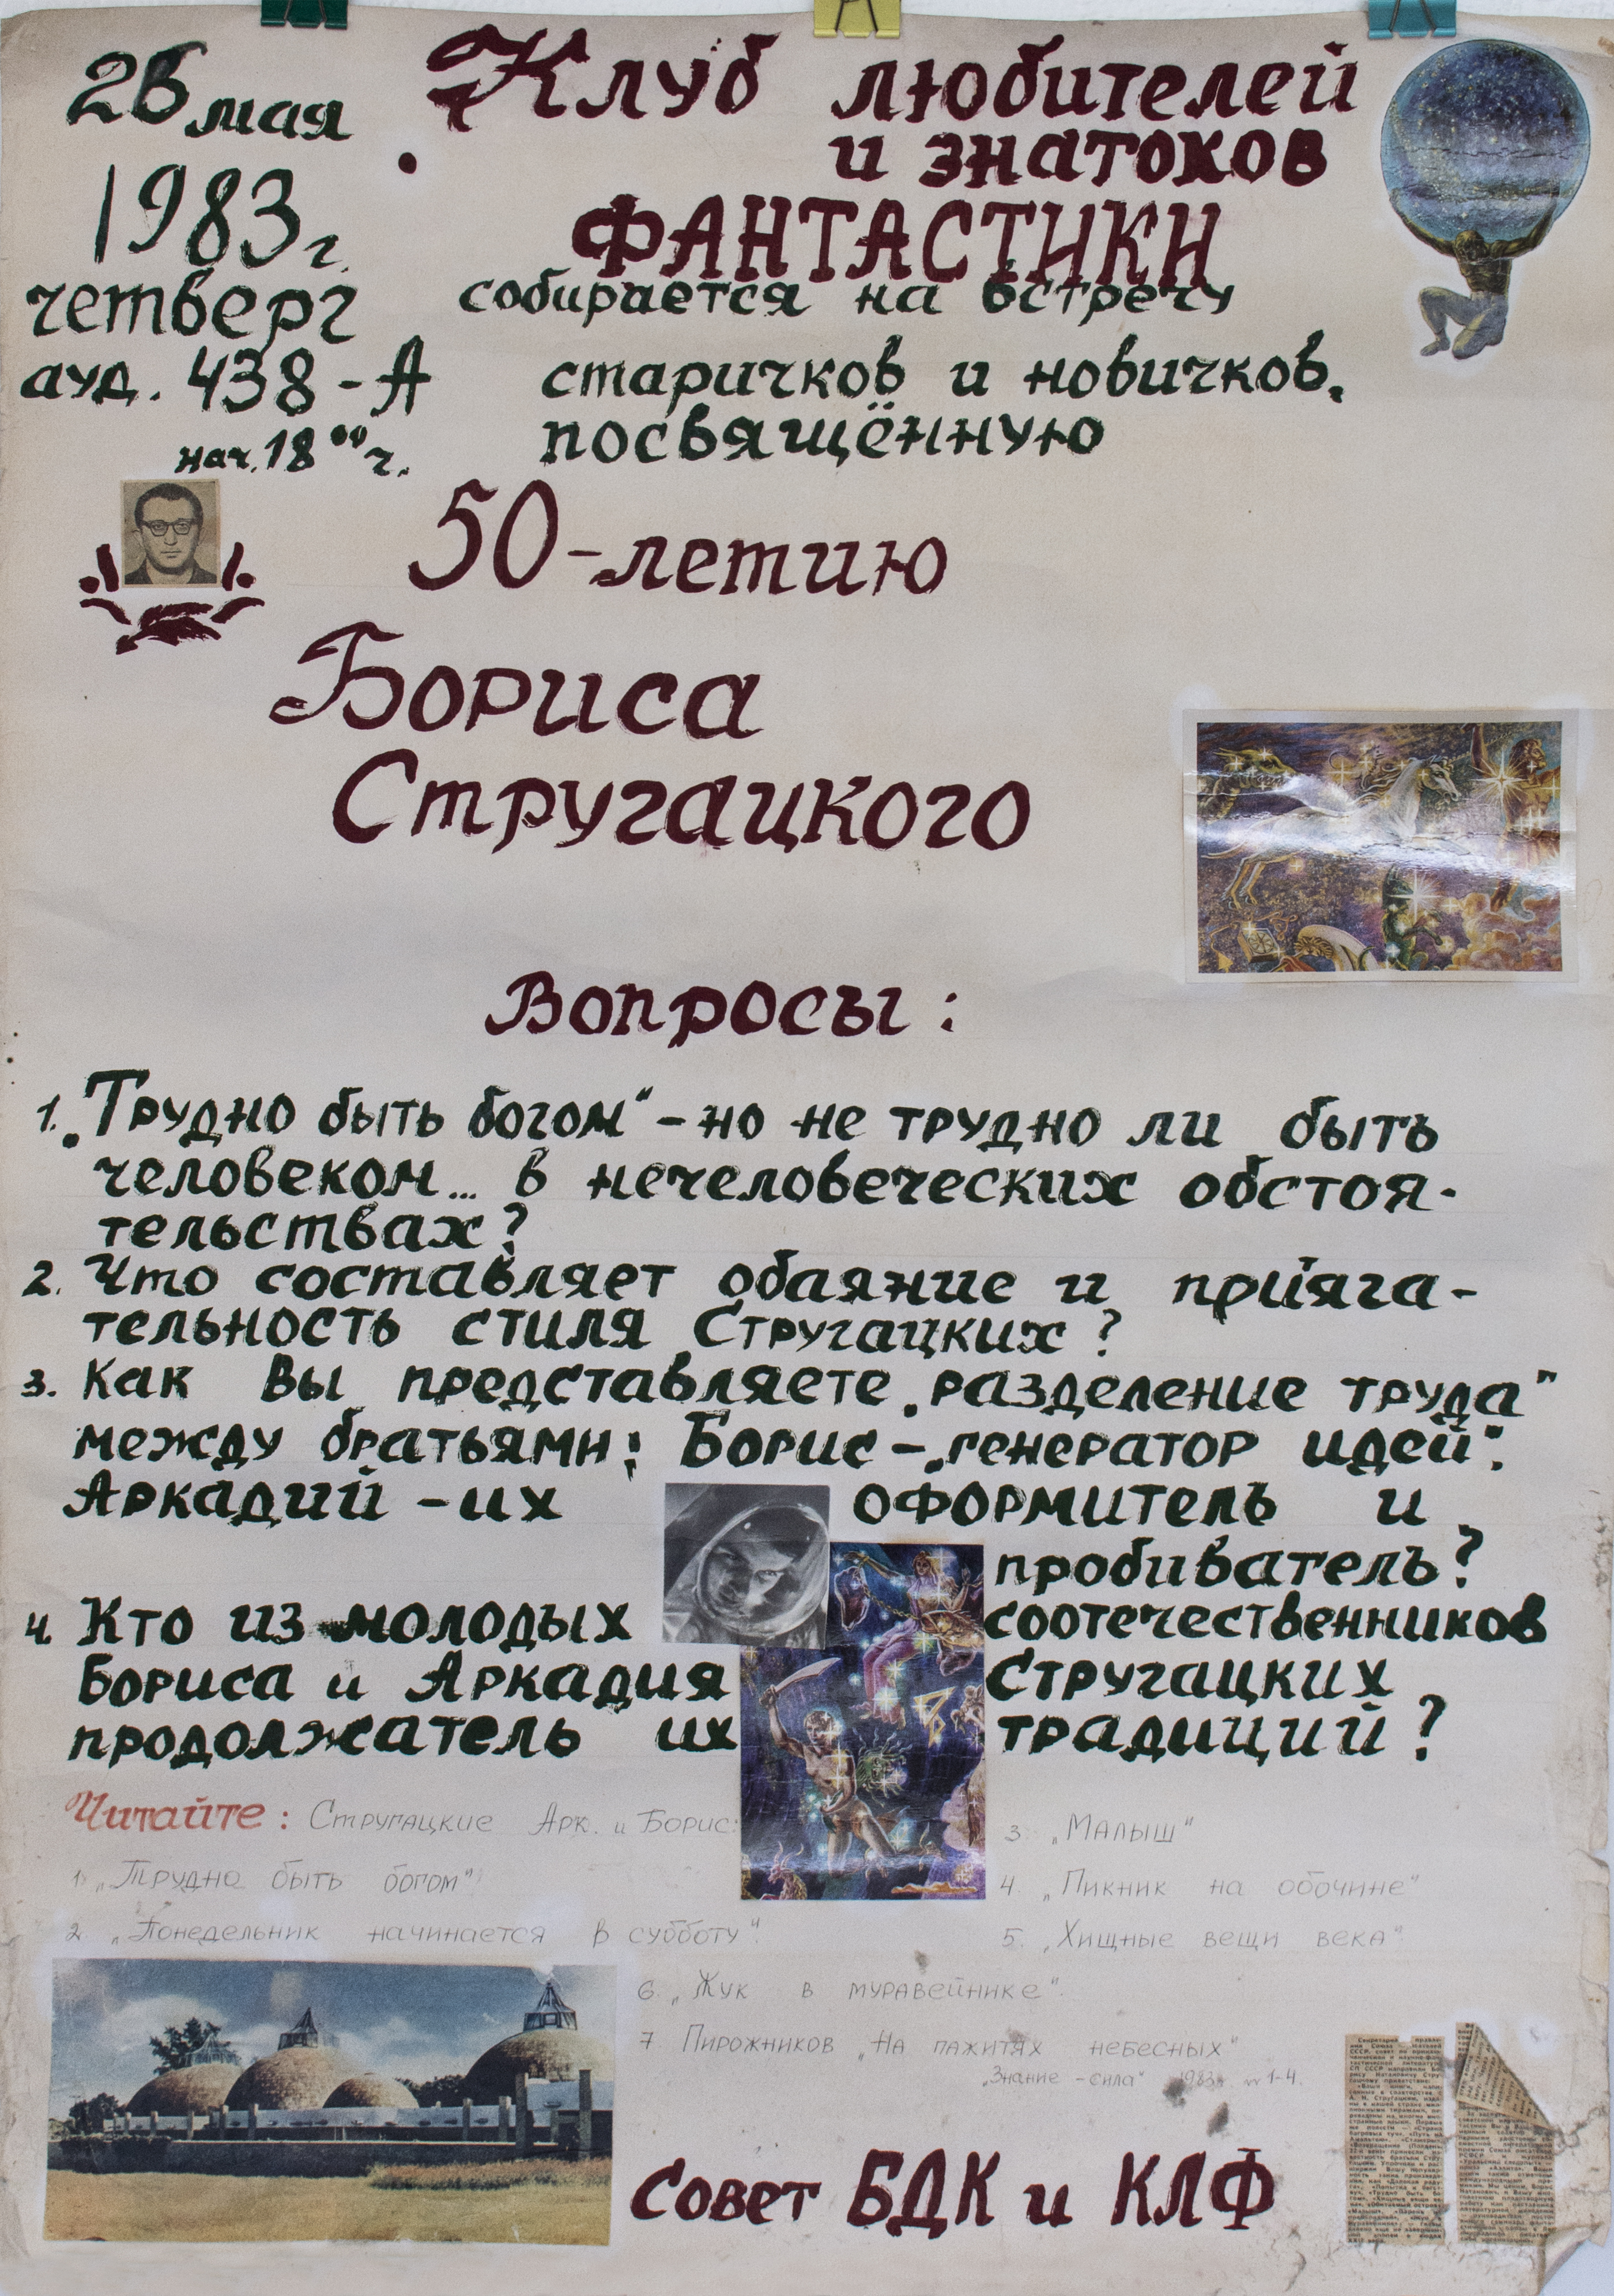 26 мая
1983 г.
четверг
ауд. 438-А
нач. 18⁰⁰ ч.
Клуб любителей
и знатоков
ФАНТАСТИКИ
собирается на встречу
старичков и новичков,
посвящённую
50-летию
Бориса
Стругацкого
Вопросы:
1. „Трудно быть богом“ – но не трудно ли быть
человеком... в нечеловеческих обстоя-
тельствах?
2. Что составляет обаяние и
тельность стиля Стругацких?
3. Как Вы представляете „разделение труда“
между братьями: Борис – „генератор идей“.
Аркадий – их оформитель и
пробиватель?
4. Кто из молодых соотечественников
Бориса и Аркадия Стругацких
продолжатель их традиций?
Читайте: Стругацкие Арк. и Борис:
1. „Трудно быть богом“
2. „Понедельник начинается в субботу“.
3. „Малыш“
4. „Пикник на обочине“
5. „Хищные вещи века“
6. „Жук в муравейнике“.
7 Пирожников „На пажитях небесных“
„Знание – сила“ 1983г. №1-4.
Совет БДК и КЛФ